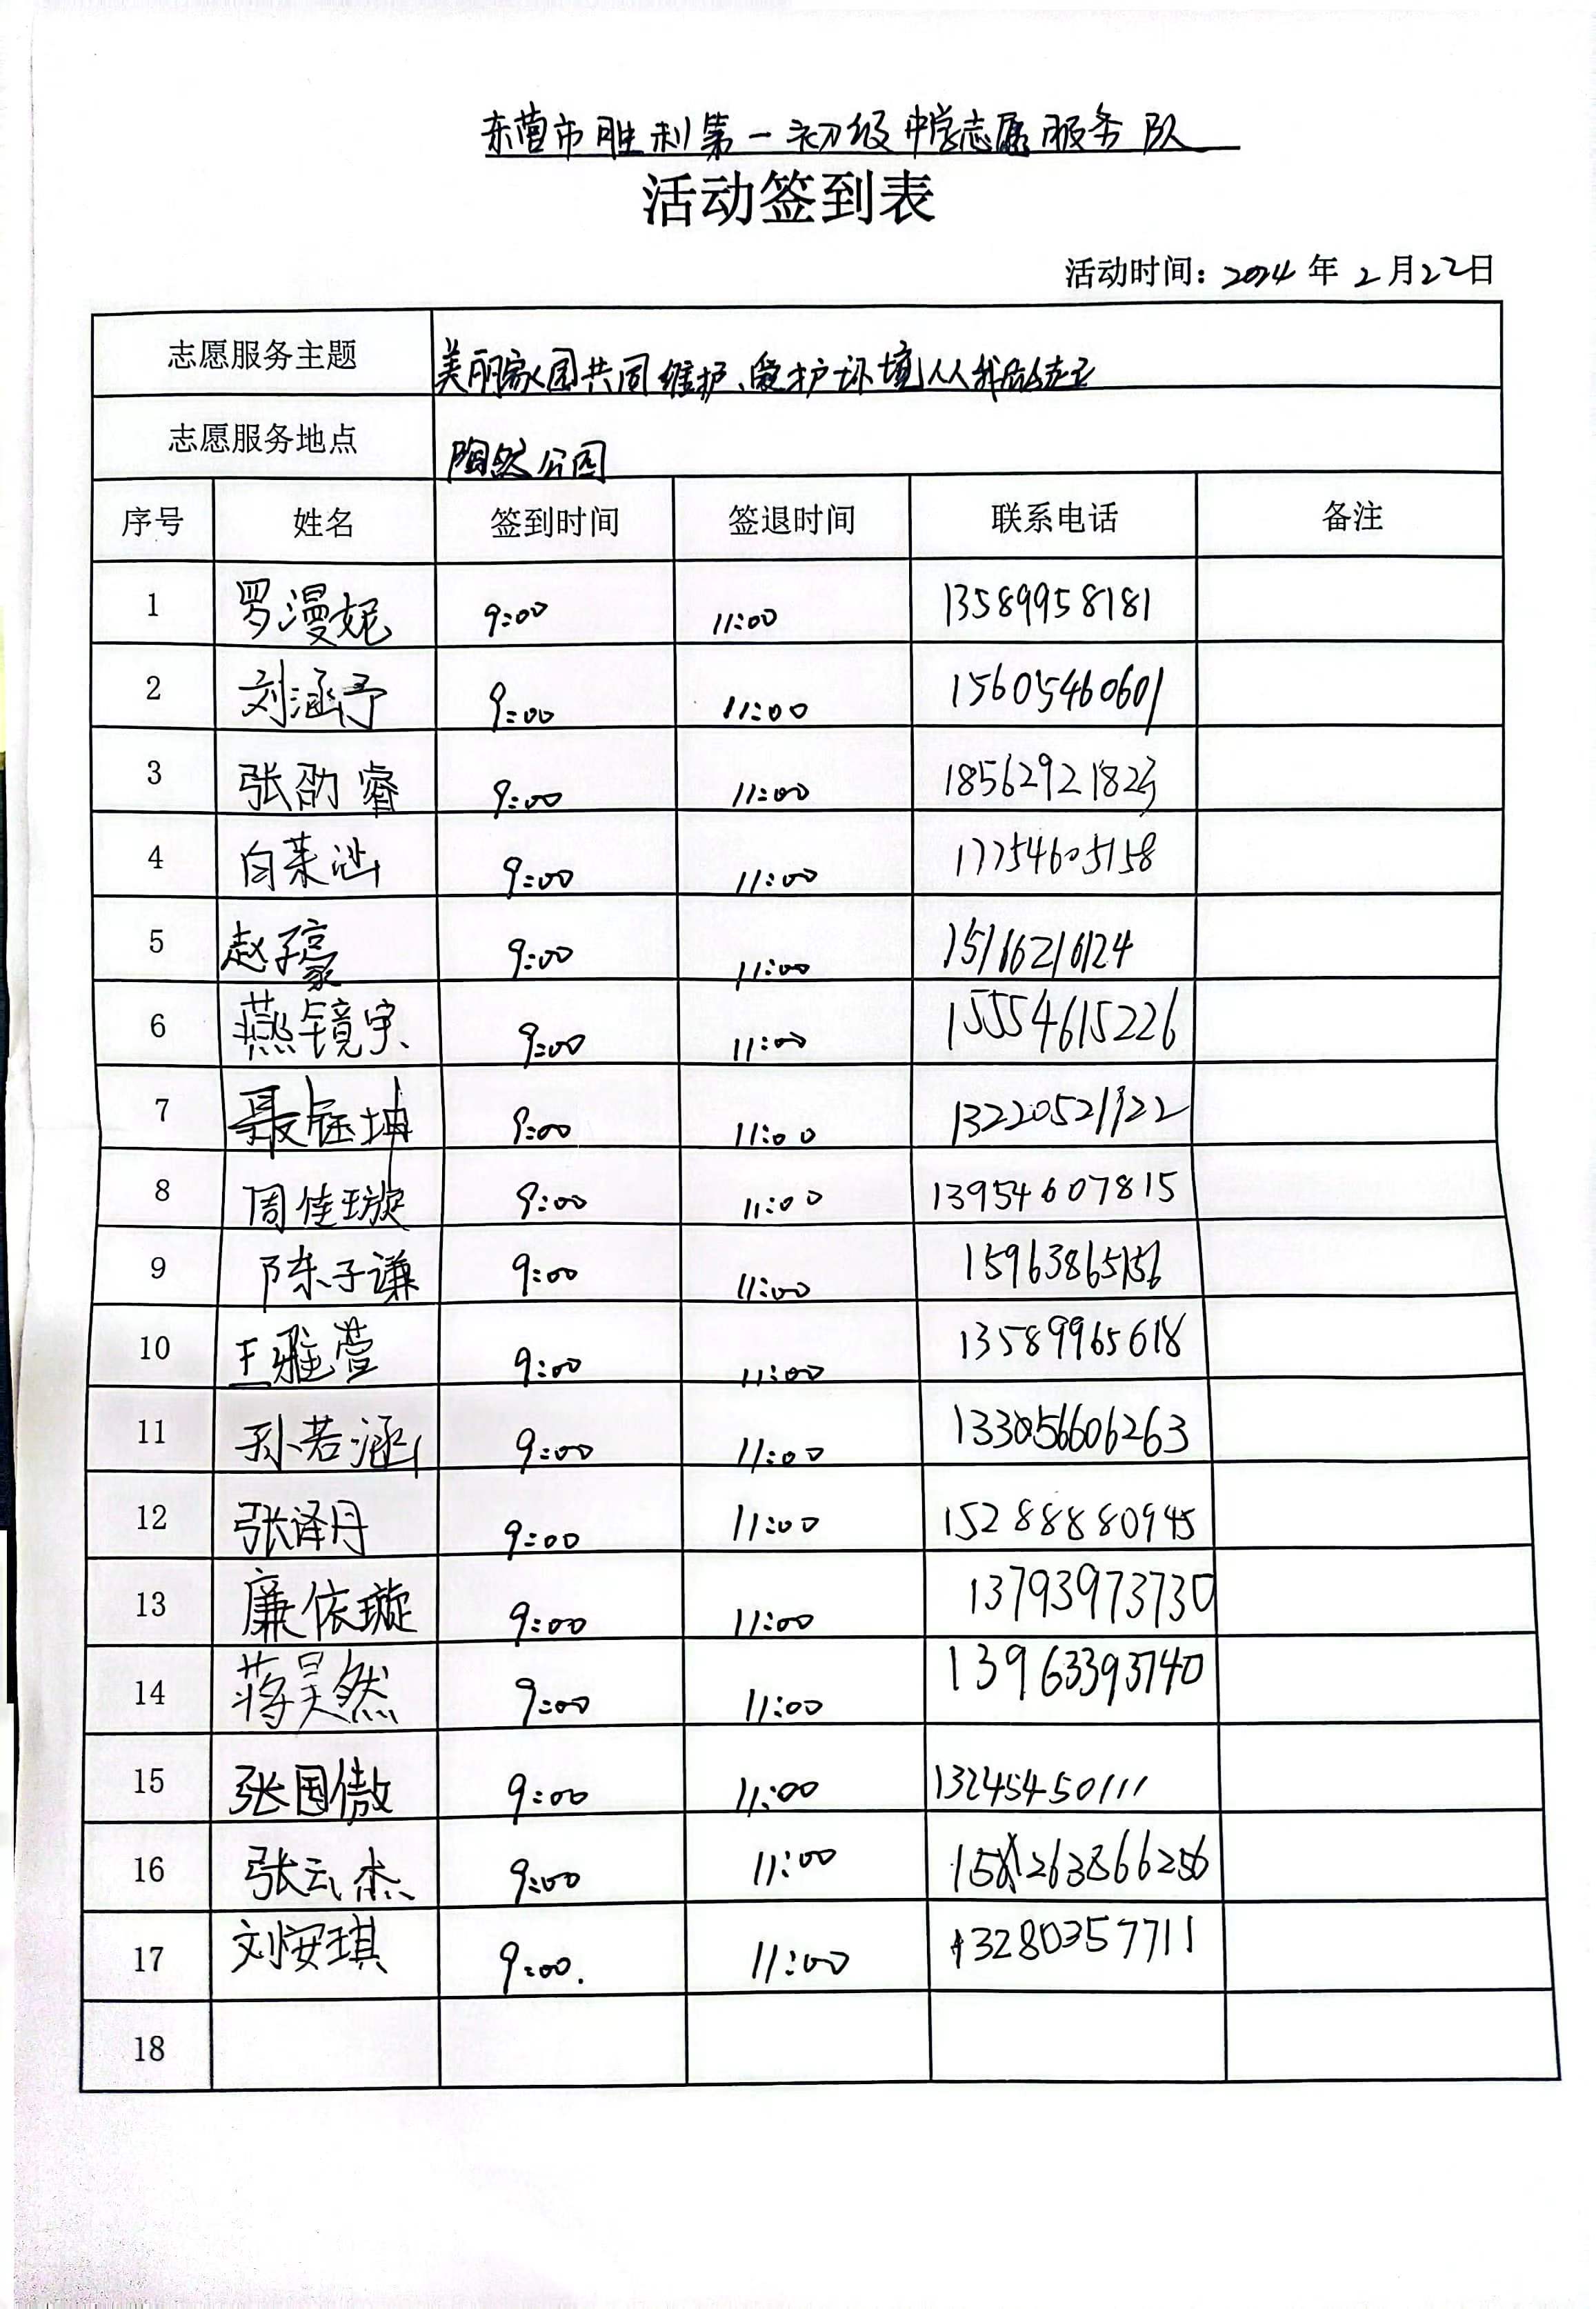 东营市胜利第一初级中学志愿服务队
活动签到表
活动时间：2024年2月22日
志愿服务主题 美丽家园共同维护、爱护环境人人我
志愿服务地点 陶然公园
序号 姓名 签到时间 签退时间 联系电话 备注
1 罗漫妮 9:00 11:00 13589958181
2 刘涵予 9:00 11:00 15605460601
3 张劭睿 9:00 11:00
4 白茉汕 9:00 11:00 17754605158
5 赵子豪 9:00 11:00 15116216124
6 燕镜宇 9:00 11:00 15554615226
7 聂钰坤 9:00 11:00
8 周佳璇 9:00 11:00 13954607815
9 陈子谦 9:00 11:00 15963865156
10 王雅萱 9:00 11:00 13589965618
11 孙若涵 9:00 11:00
12 张译丹 9:00 11:00 15288880945
13 廉依璇 9:00 11:00 13793973730
14 蒋昊然 9:00 11:00 13963393740
15 张国傲 9:00 11:00 13245450111
16 张云杰 9:00 11:00
17 刘安琪 9:00. 11:00 13280357711
18